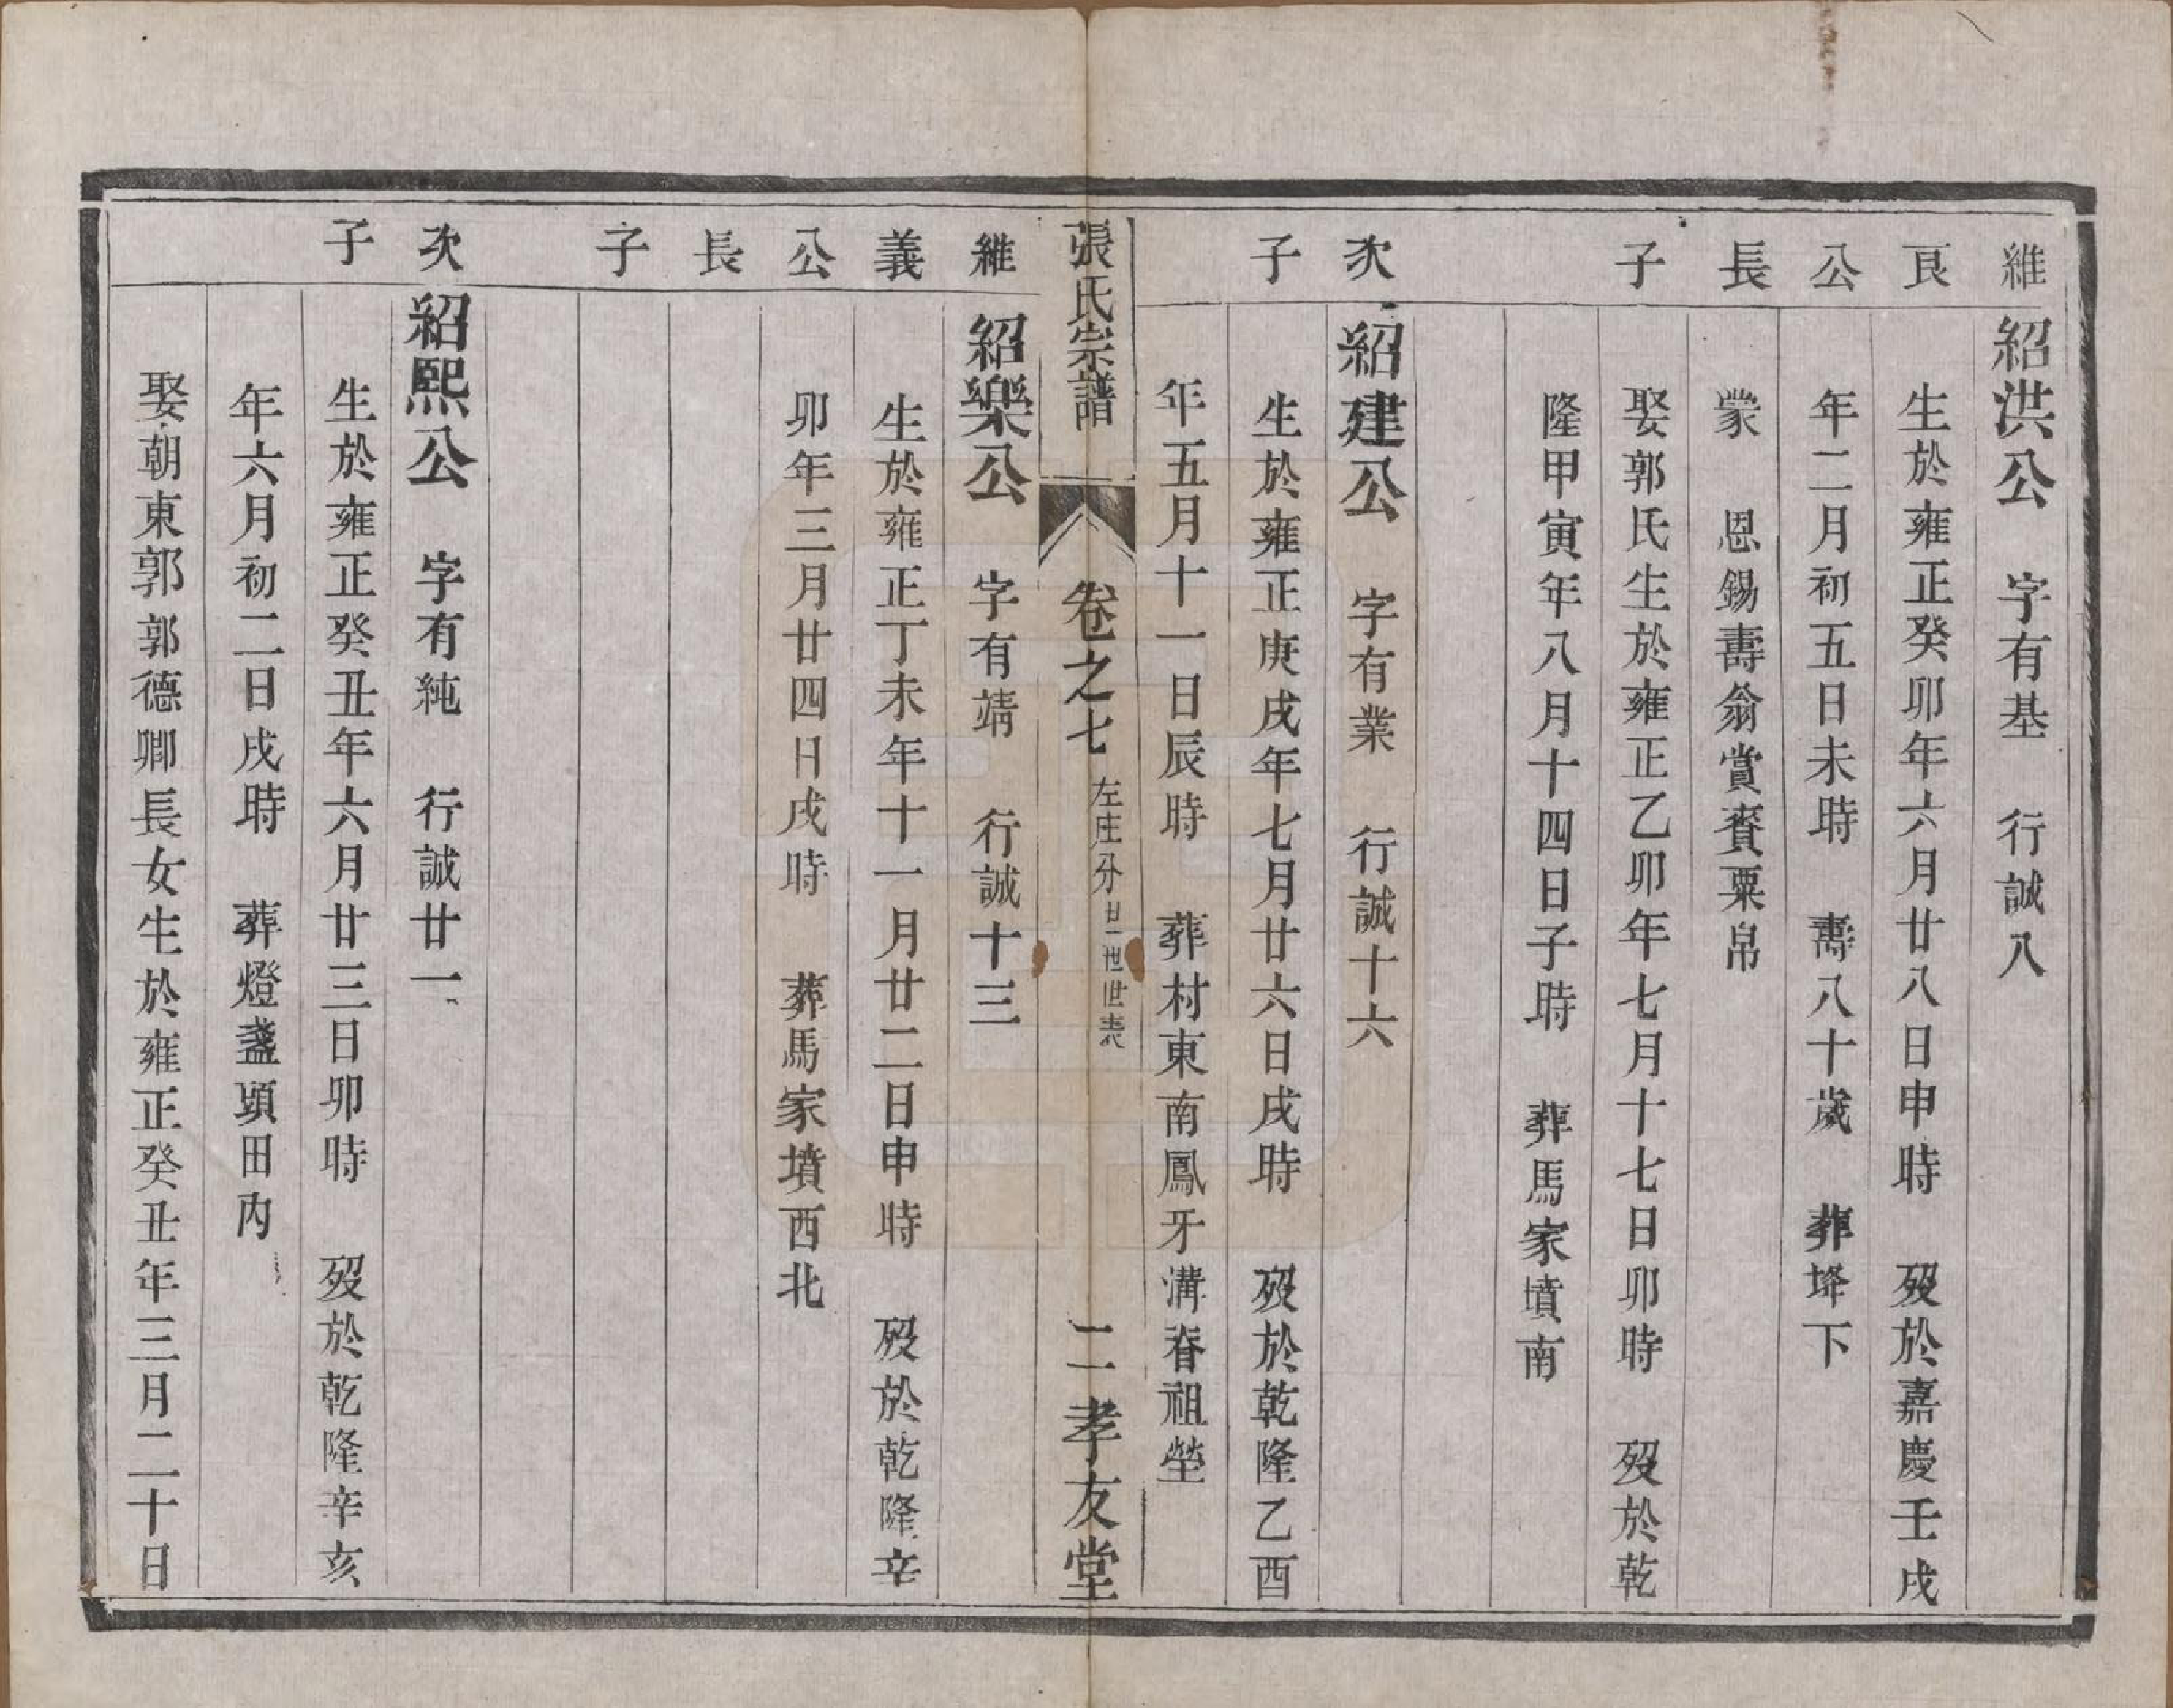 維良公長子
紹洪公　字有基　行誠八
生於雍正癸卯年六月廿八日申時　歿於嘉慶壬戌
年二月初五日未時　壽八十歲　葬埄下
蒙　恩錫壽翁賞賚粟帛
娶郭氏生於雍正乙卯年七月十七日卯時　歿於乾
隆甲寅年八月十四日子時　葬馬家墳南
次子
紹建公　字有業　行誠十六
生於雍正庚戌年七月廿六日戌時　歿於乾隆乙酉
年五月十一日辰時　葬村東南鳳牙溝脊祖塋
張氏宗譜
卷之七　左庄分廿一世世表
二孝友堂
維義公長子
紹樂公　字有靖　行誠十三
生於雍正丁未年十一月廿二日申時　歿於乾隆辛
卯年三月廿四日戌時　葬馬家墳西北
次子
紹熙公　字有純　行誠廿一
生於雍正癸丑年六月廿三日卯時　歿於乾隆辛亥
年六月初二日戌時　葬燈盞頭田內
娶朝東郭郭德卿長女生於雍正癸丑年三月二十日